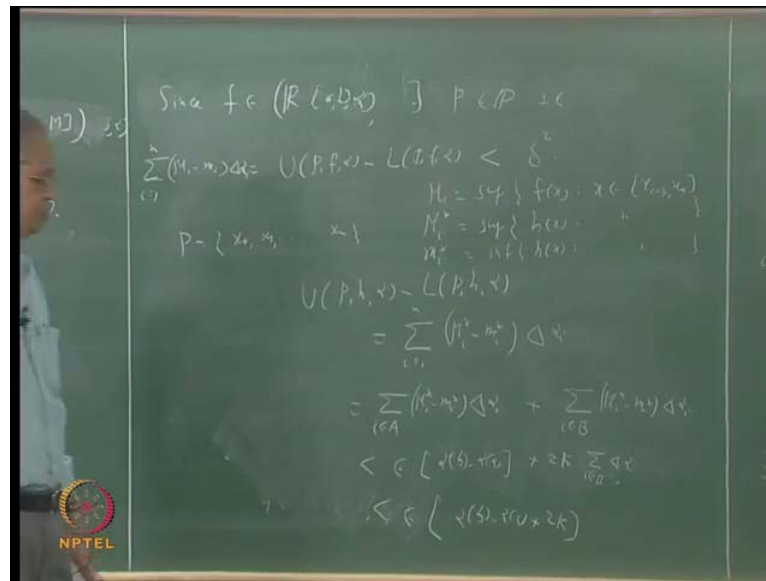 Since f ∈ (R [a,b], α) ∃ P ∈ ℙ s.t
M])
∑_{i=1}^{n} (M_i - m_i) Δα_i = U(P,f,α) - L(P,f,α) < δ²
M_i = sup { f(x) : x ∈ [x_{i-1}, x_i]
P = { x_0, x_1, ... x_n }
M_i^* = sup { h(x) : " }
m_i^* = inf { h(x) : " }
U(P,h,α) - L(P,h,α)
= ∑_{i=1}^{n} (M_i^* - m_i^*) Δα_i
= ∑_{i∈A} (M_i^* - m_i^*) Δα_i + ∑_{i∈B} (M_i^* - m_i^*) Δα_i
< ∈ [α(b) - α(a)] + 2K ∑_{i∈B} Δα_i
< ∈ [α(b) - α(a) + 2K]
NPTEL